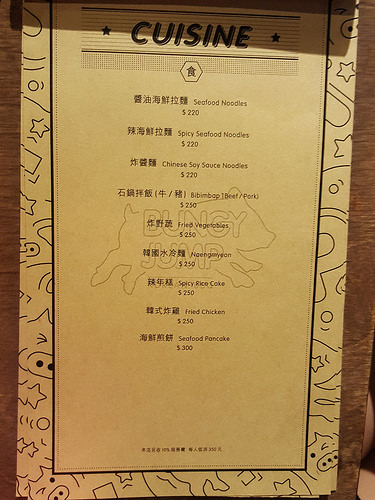 CUISINE
食
醬油海鮮拉麵 Seafood Noodles
$ 220
辣海鮮拉麵 Spicy Seafood Noodles
$ 220
炸醬麵 Chinese Soy Sauce Noodles
$ 220
石鍋拌飯 (牛 / 豬) Bibimbap (Beef / Pork)
$ 250
炸野蔬 Fried Vegetables
$ 250
韓國水冷麵 Naengmyeon
$ 250
辣年糕 Spicy Rice Cake
$ 250
韓式炸雞 Fried Chicken
$ 250
海鮮煎餅 Seafood Pancake
$ 300
BUNGY
JUMP
本店另收10% 服務費 每人低消 350 元